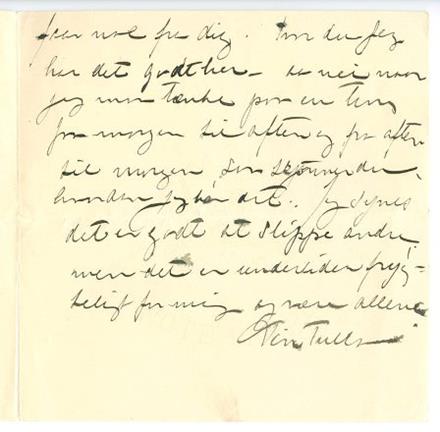 faar nok fra dig. Tror du jeg
har det godt her – aa nei naar
jeg maa tænke paa en ting
fra morgen til aften og fra aften
til morgen, saa skjønner du,
hvordan jeg har det. Jeg synes
det er godt at slippe andre,
men det er undertiden frygte-
ligt for mig at være allene
Din Tulla